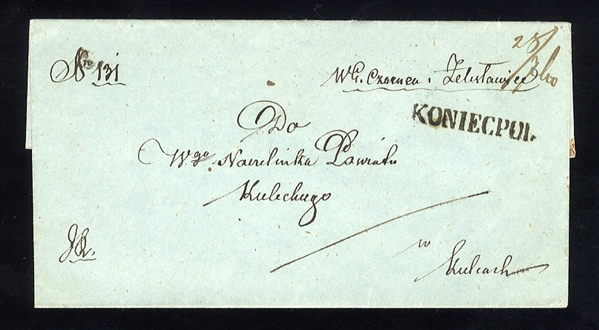 28/
No 131
WG. Czarnca i Żelisławice
KONIECPOL
Do
Wgo Naczelnika Powiatu
Kieleckiego
w
Kielcach